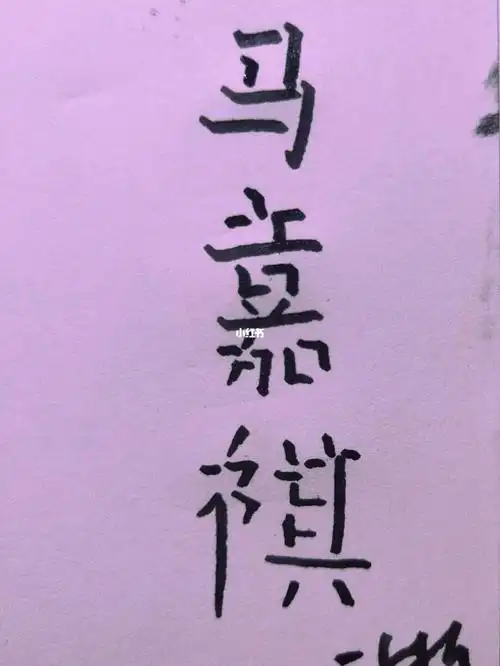 马
嘉
祺
小红书